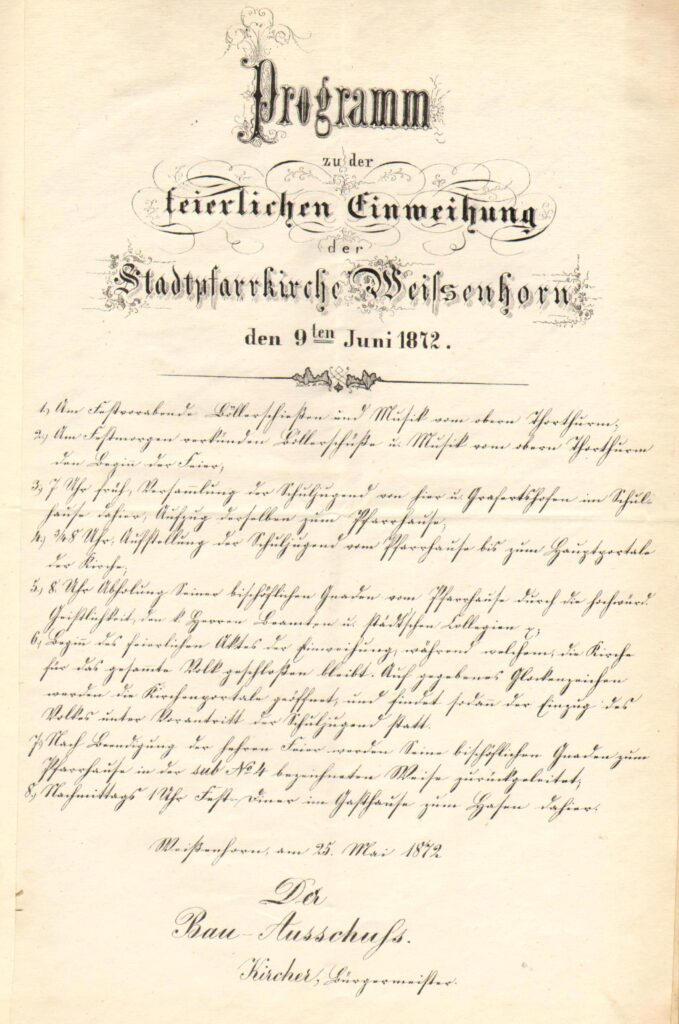 Programm
zu der
feierlichen Einweihung
der
Stadtpfarrkirche Weissenhorn
den 9ten Juni 1872.
1, Am Festvorabende Böllerschießen und Musik vom obern Thorthurm,
2, Am Festmorgen verkünden Böllerschüße u. Musik vom obern Thorthurm
den Begin der Feier,
3, 7 Uhr früh, Versammlung der Schuljugend von hier u. Grafertshofen im Schul-
hause dahier, Aufzug derselben zum Pfarrhause,
4, 3/48 Uhr, Aufstellung der Schuljugend vom Pfarrhause bis zum Hauptportale
der Kirche,
5, 8 Uhr Abholung Seiner bischöflichen Gnaden vom Pfarrhause durch die hochwürd.
Geistlichkeit, den k. Herren Beamten u. städt'schen Collegien
6, Begin des feierlichen Aktes der Einweihung, während welchem, die Kirche
für das gesamte Volk geschloßen bleibt. Auf gegebenes Glockenzeichen
werden die Kirchenportale geöffnet, und findet sodan der Einzug des
Volkes unter Vorantritt der Schuljugend statt.
7, Nach Beendigung der hehren Feier werden Seine bischöflichen Gnaden zum
Pfarrhause in der sub No 4 bezeichneten Weise zurückgeleitet,
8, Nachmittags 1 Uhr Fest-Diner im Gasthause zum Hasen dahier.
Weißenhorn, am 25. Mai 1872
Der
Bau-Ausschuss.
Kircher, Bürgermeister.